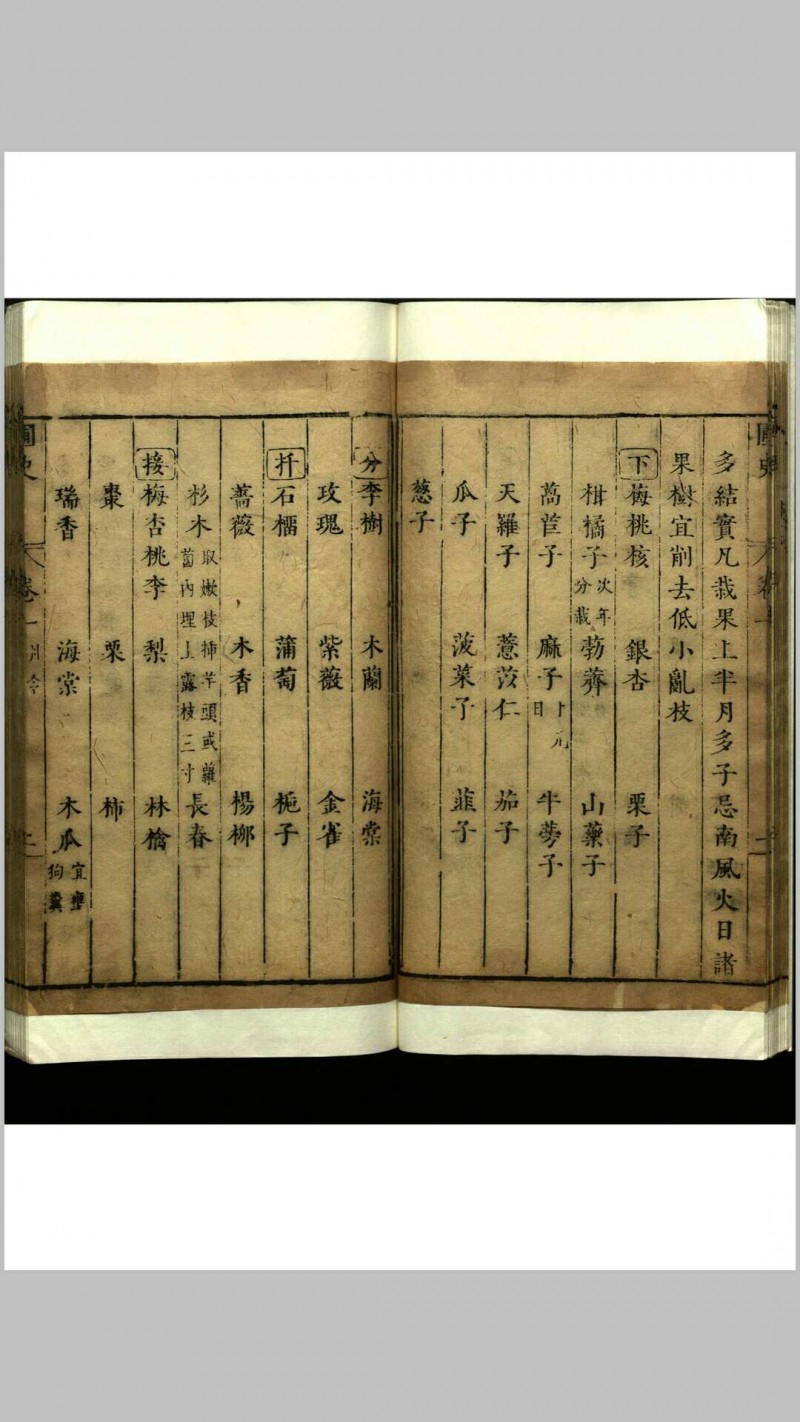 多結實凡栽果上半月多子忌南風火日諸
果樹宜削去低小亂枝
下 梅桃核 銀杏 栗子
柑橘子 次年分栽 勃薺 山藥子
萵苣子 麻子 上元日 牛蒡子
天羅子 薏苡仁 茄子
瓜子 菠菜子 韮子
葱子
分 李樹 木蘭 海棠
玫瑰 紫薇 金雀
扦 石榴 蒲萄 梔子
薔薇 木香 楊柳
杉木 取嫰枝揷芋頭或蘿蔔內埋土露枝三寸 長春
接 梅杏桃李 梨 林檎
棗 栗 柿
瑞香 海棠 木瓜 宜壅狗糞
卷一 月令